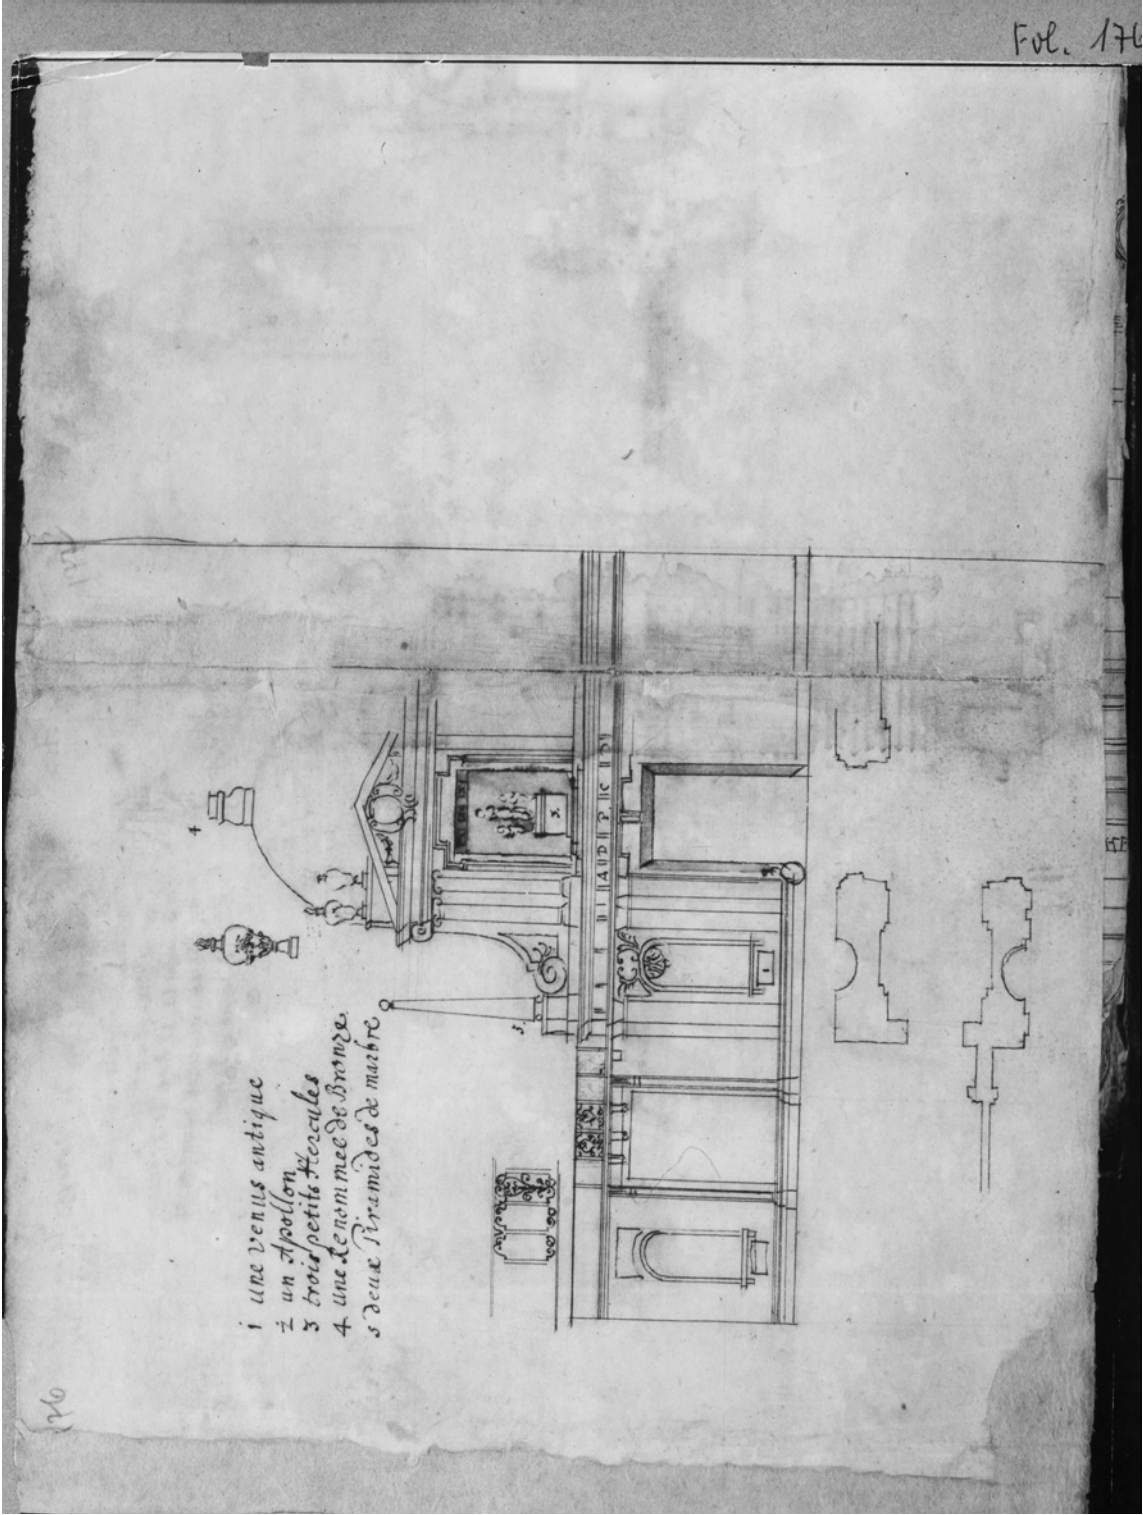 Fol. 176
176
1 une venus antique
2 un Apollon
3 trois petits Hercules
4 une Renommee de Bronze.
5 deux Piramides de marbre
4
5.
3.
1